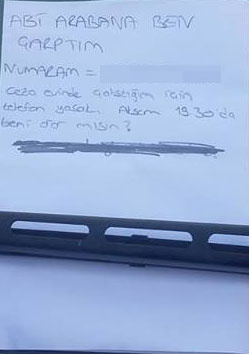 ABİ ARABANA BEN
ÇARPTIM
NUMARAM =
Ceza evinde çalıştığım için
telefon yasak. Akşam 19.30 da
beni arar mısın?